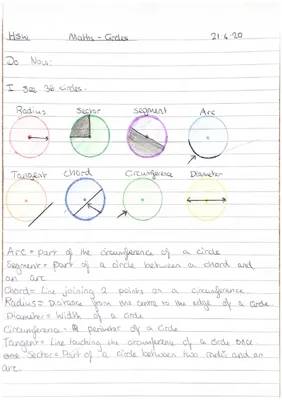 Maths - Circles 21.4.20
Do Now:
I see 36 circles.
Radius Sector Segment Arc
Tangent Chord Circumference Diameter
Arc = Part of the circumference of a circle
Segment = Part of a circle between a chord and
an arc
Chord = Line joining 2 points on a circumference
Radius = Distance from the centre to the edge of a circle
Diameter = Width of a circle
Circumference = perimeter of a circle
Tangent = Line touching the circumference of a circle once
Sector = Part of a circle between two radii and an
arc